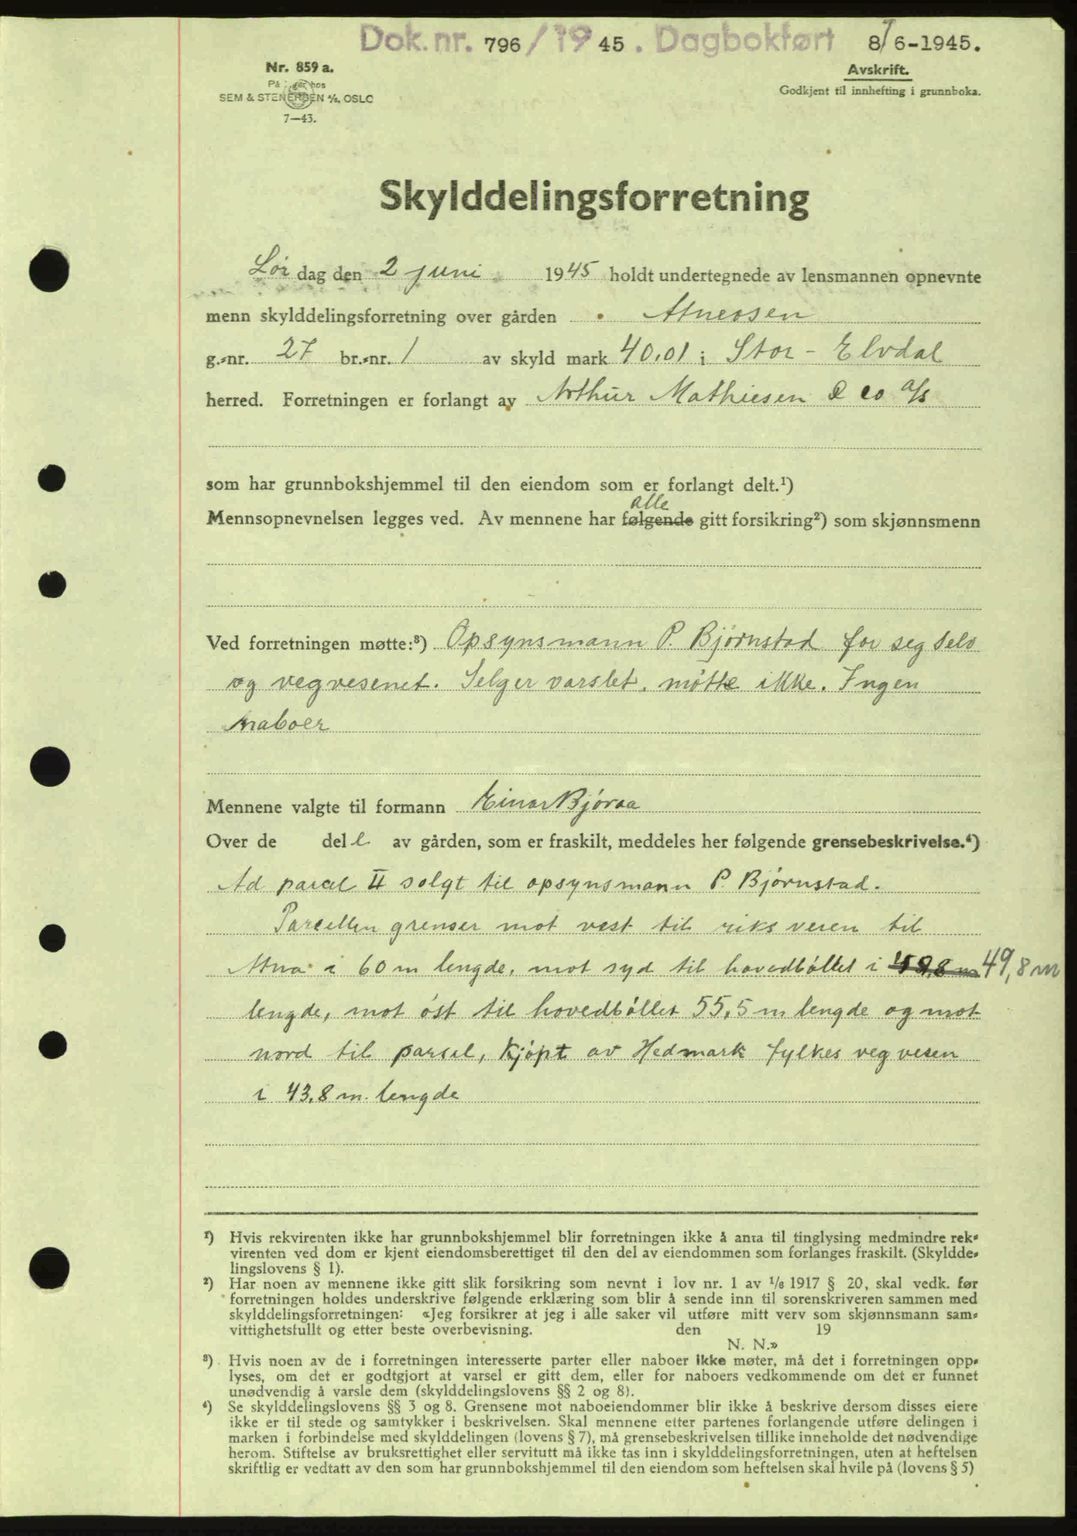 Dok. nr. 796/1945. Dagbokført 8/6-1945.
Nr. 859 a.
Avskrift.
På lager hos
SEM & STENERSEN A/S, OSLO
Godkjent til innhefting i grunnboka.
7—43.
Skylddelingsforretning
Lørdag den 2 juni 1945 holdt undertegnede av lensmannen opnevnte
menn skylddelingsforretning over gården Atneosen
g.-nr. 27 br.-nr. 1 av skyld mark 40,01 i Stor-Elvdal
herred. Forretningen er forlangt av Arthur Mathiesen & co a/s
som har grunnbokshjemmel til den eiendom som er forlangt delt.¹)
alle
Mennsopnevnelsen legges ved. Av mennene har følgende gitt forsikring²) som skjønnsmenn
Ved forretningen møtte:³) Opsynsmann P. Bjørnstad for seg selv
og vegvesenet. Selger varslet, møtte ikke. Ingen
naboer
Mennene valgte til formann Einar Bjøraa
Over de del l av gården, som er fraskilt, meddeles her følgende grensebeskrivelse.⁴)
Ad parcel II solgt til opsynsmann P. Bjørnstad.
Parcellen grenser mot vest til riksveien til
Atna i 60 m lengde, mot syd til hovedbøllet i 49,8 m 49,8 m
lengde, mot øst til hovedbøllet 55,5 m lengde og mot
nord til parsel, kjøpt av Hedmark fylkes vegvesen
i 43,8 m. lengde
¹) Hvis rekvirenten ikke har grunnbokshjemmel blir forretningen ikke å anta til tinglysing medmindre rek-
virenten ved dom er kjent eiendomsberettiget til den del av eiendommen som forlanges fraskilt. (Skyldde-
lingslovens § 1).
²) Har noen av mennene ikke gitt slik forsikring som nevnt i lov nr. 1 av 1/6 1917 § 20, skal vedk. før
forretningen holdes underskrive følgende erklæring som blir å sende inn til sorenskriveren sammen med
skylddelingsforretningen: «Jeg forsikrer at jeg i alle saker vil utføre mitt verv som skjønnsmann sam-
vittighetsfullt og etter beste overbevisning. den 19
N. N.»
³) Hvis noen av de i forretningen interesserte parter eller naboer ikke møter, må det i forretningen opp-
lyses, om det er godtgjort at varsel er gitt dem, eller for naboers vedkommende om det er funnet
unødvendig å varsle dem (skylddelingslovens §§ 2 og 8).
⁴) Se skylddelingslovens §§ 3 og 8. Grensene mot naboeiendommer blir ikke å beskrive dersom disses eiere
ikke er til stede og samtykker i beskrivelsen. Skal mennene etter partenes forlangende utføre delingen i
marken i forbindelse med skylddelingen (lovens § 7), må grensebeskrivelsen tillike inneholde det nødvendige
herom. Stiftelse av bruksrettighet eller servitutt må ikke tas inn i skylddelingsforretningen, uten at heftelsen
skriftlig er vedtatt av den som har grunnbokshjemmel til den eiendom som heftelsen skal hvile på (lovens § 5)